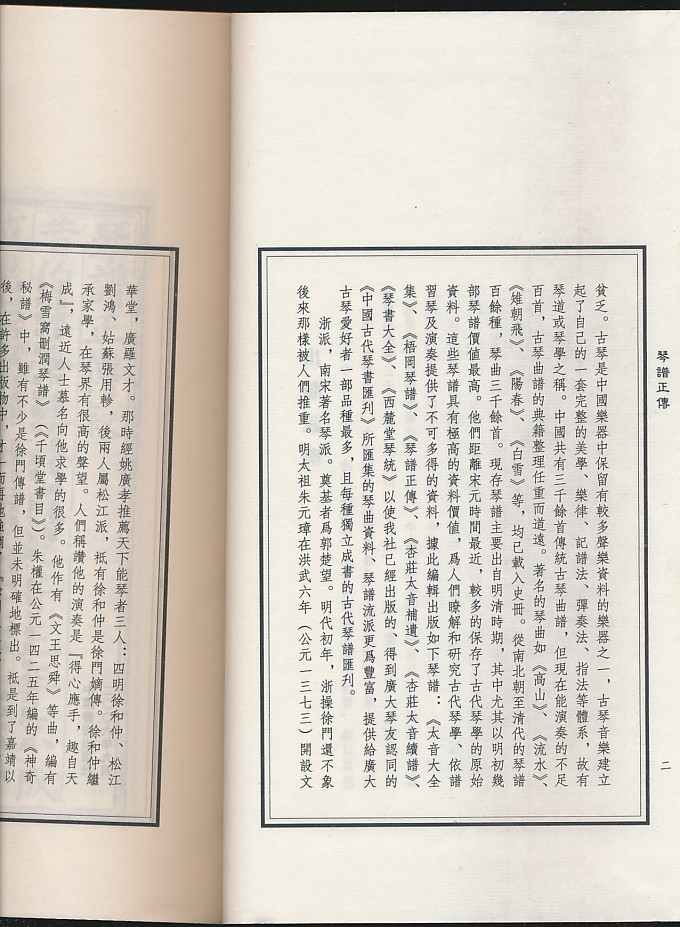 琴譜正傳
二
貧乏。古琴是中國樂器中保留有較多聲樂資料的樂器之一，古琴音樂建立
起了自己的一套完整的美學、樂律、記譜法、彈奏法、指法等體系，故有
琴道或琴學之稱。中國共有三千餘首傳統古琴曲譜，但現在能演奏的不足
百首，古琴曲譜的典籍整理任重而道遠。著名的琴曲如《高山》、《流水》、
《雉朝飛》、《陽春》、《白雪》等，均已載入史冊。從南北朝至清代的琴譜
百餘種，琴曲三千餘首。現存琴譜主要出自明清時期，其中尤其以明初幾
部琴譜價值最高。他們距離宋元時間最近，較多的保存了古代琴學的原始
資料。這些琴譜具有極高的資料價值，爲人們瞭解和研究古代琴學、依譜
習琴及演奏提供了不可多得的資料，據此編輯出版如下琴譜：《太音大全
集》、《梧岡琴譜》、《琴譜正傳》、《杏莊太音補遺》、《杏莊太音續譜》、
《琴書大全》、《西麓堂琴統》以使我社已經出版的、得到廣大琴友認同的
《中國古代琴書匯刊》所匯集的琴曲資料、琴譜流派更爲豐富，提供給廣大
古琴愛好者一部品種最多，且每種獨立成書的古代琴譜匯刊。
浙派，南宋著名琴派。奠基者爲郭楚望。明代初年，浙操徐門還不象
後來那樣被人們推重。明太祖朱元璋在洪武六年（公元一三七三）開設文
華堂，廣羅文才。那時經姚廣孝推薦天下能琴者三人：四明徐和仲、松江
劉鴻、姑蘇張用軫，後兩人屬松江派，祇有徐和仲是徐門嫡傳。徐和仲繼
承家學，在琴界有很高的聲望。人們稱讚他的演奏是『得心應手，趣自天
成』，遠近人士慕名向他求學的很多。他作有《文王思舜》等曲，編有
《梅雪窩刪潤琴譜》（《千頃堂書目》）。朱權在公元一四二五年編的《神奇
秘譜》中，雖有不少是徐門傳譜，但並未明確地標出。祇是到了嘉靖以
後，在許多出版物中，才一而再地強調，